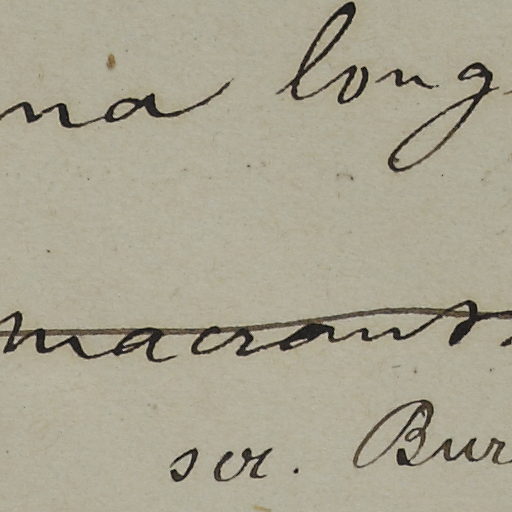 na long
macrant
scr. Bur